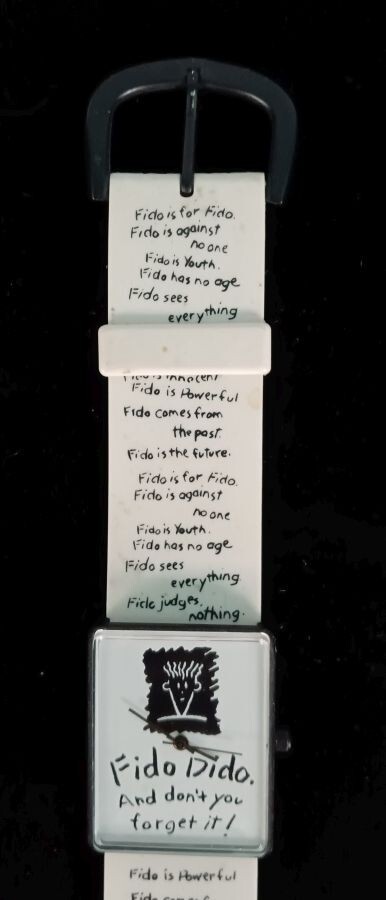 Fido is for Fido.
Fido is against
no one
Fido is Youth.
Fido has no age
Fido sees
everything
Fido is innocent
Fido is Powerful
Fido comes from
the past.
Fido is the future.
Fido is for Fido.
Fido is against
no one
Fido is Youth.
Fido has no age
Fido sees
everything
Fido judges
nothing.
Fido Dido.
And don't you
forget it!
Fido is Powerful
Fido comes from